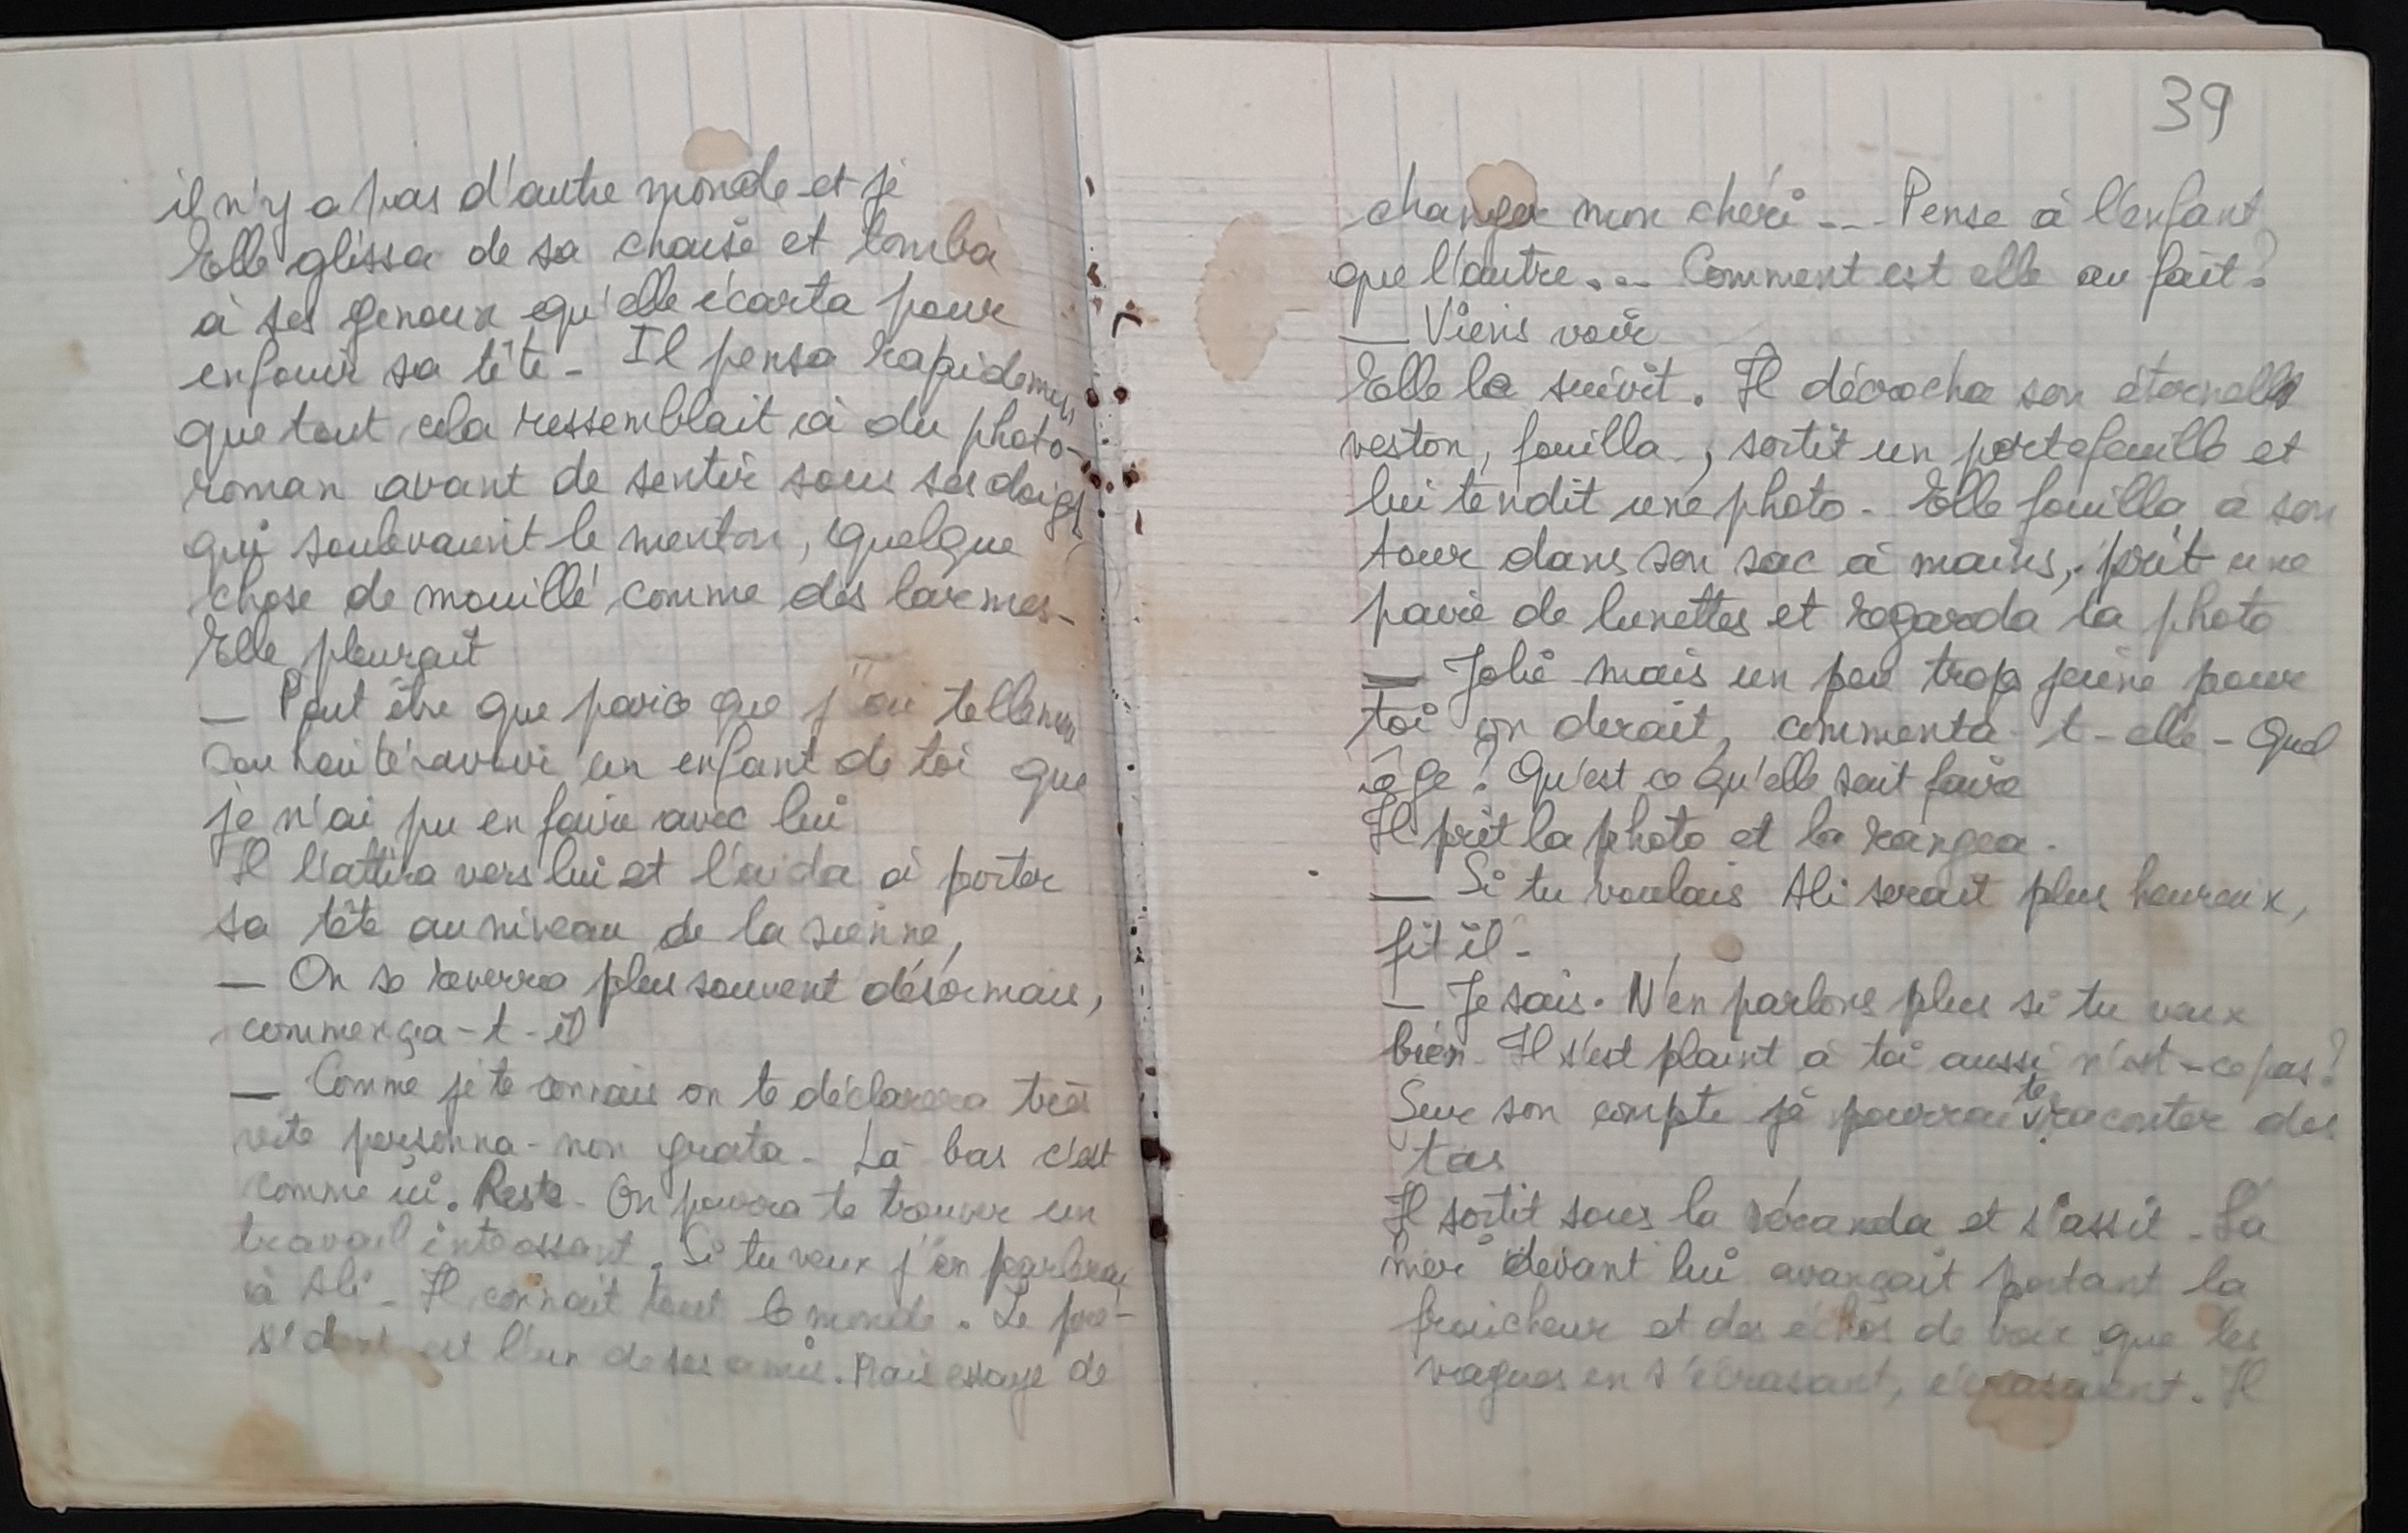 il n'y a pas d'autre monde et je
Elle glissa de sa chaise et tomba
à ses genoux qu'elle écarta pour
enfouir sa tête - Il pensa rapidement
que tout cela ressemblait à du photo-
roman avant de sentir sous ses doigts
qui soulevaient le menton, quelque
chose de mouillé comme des larmes -
Elle pleurait
— Peut être que parce que j'ai tellement
souhaité avoir un enfant de toi que
je n'ai pu en faire avec lui
Il l'attira vers lui et l'aida à porter
sa tête au niveau de la sienne,
— On se reverra plus souvent désormais,
commença-t-il
— Comme je te connais on te déclarera très
vite personna-non grata - Là bas c'est
comme ici. Reste - On pourra te trouver un
travail intéressant. Si tu veux j'en parlerai
à Ali - Il connait tout le monde. Le pré-
sident est l'un de ses amis. Mais essaye de
39
changer mon chéri --- Pense à l'enfant
que l'autre... Comment est elle au fait?
— Viens voir
Elle le suivit. Il décrocha son éternelle
veston, fouilla, sortit un portefeuille et
lui tendit une photo - Elle fouilla à son
tour dans son sac à mains, prit une
paire de lunettes et regarda la photo
— Jolie mais un peu trop jeune pour
toi on dirait, commenta-t-elle - Quel
âge? Qu'est ce qu'elle sait faire
Il prit la photo et la rangea.
— Si tu voulais Ali serait plus heureux,
fit il -
— Je sais. N'en parlons plus si tu veux
bien - Il s'est plaint à toi aussi n'est-ce pas?
Sur son compte je pourrai te raconter des
tas
Il sortit sous la véranda et s'assit - La
mer devant lui avançait portant la
fraicheur et des échos de voix que les
vagues en s'écrasant, écrasaient. Il